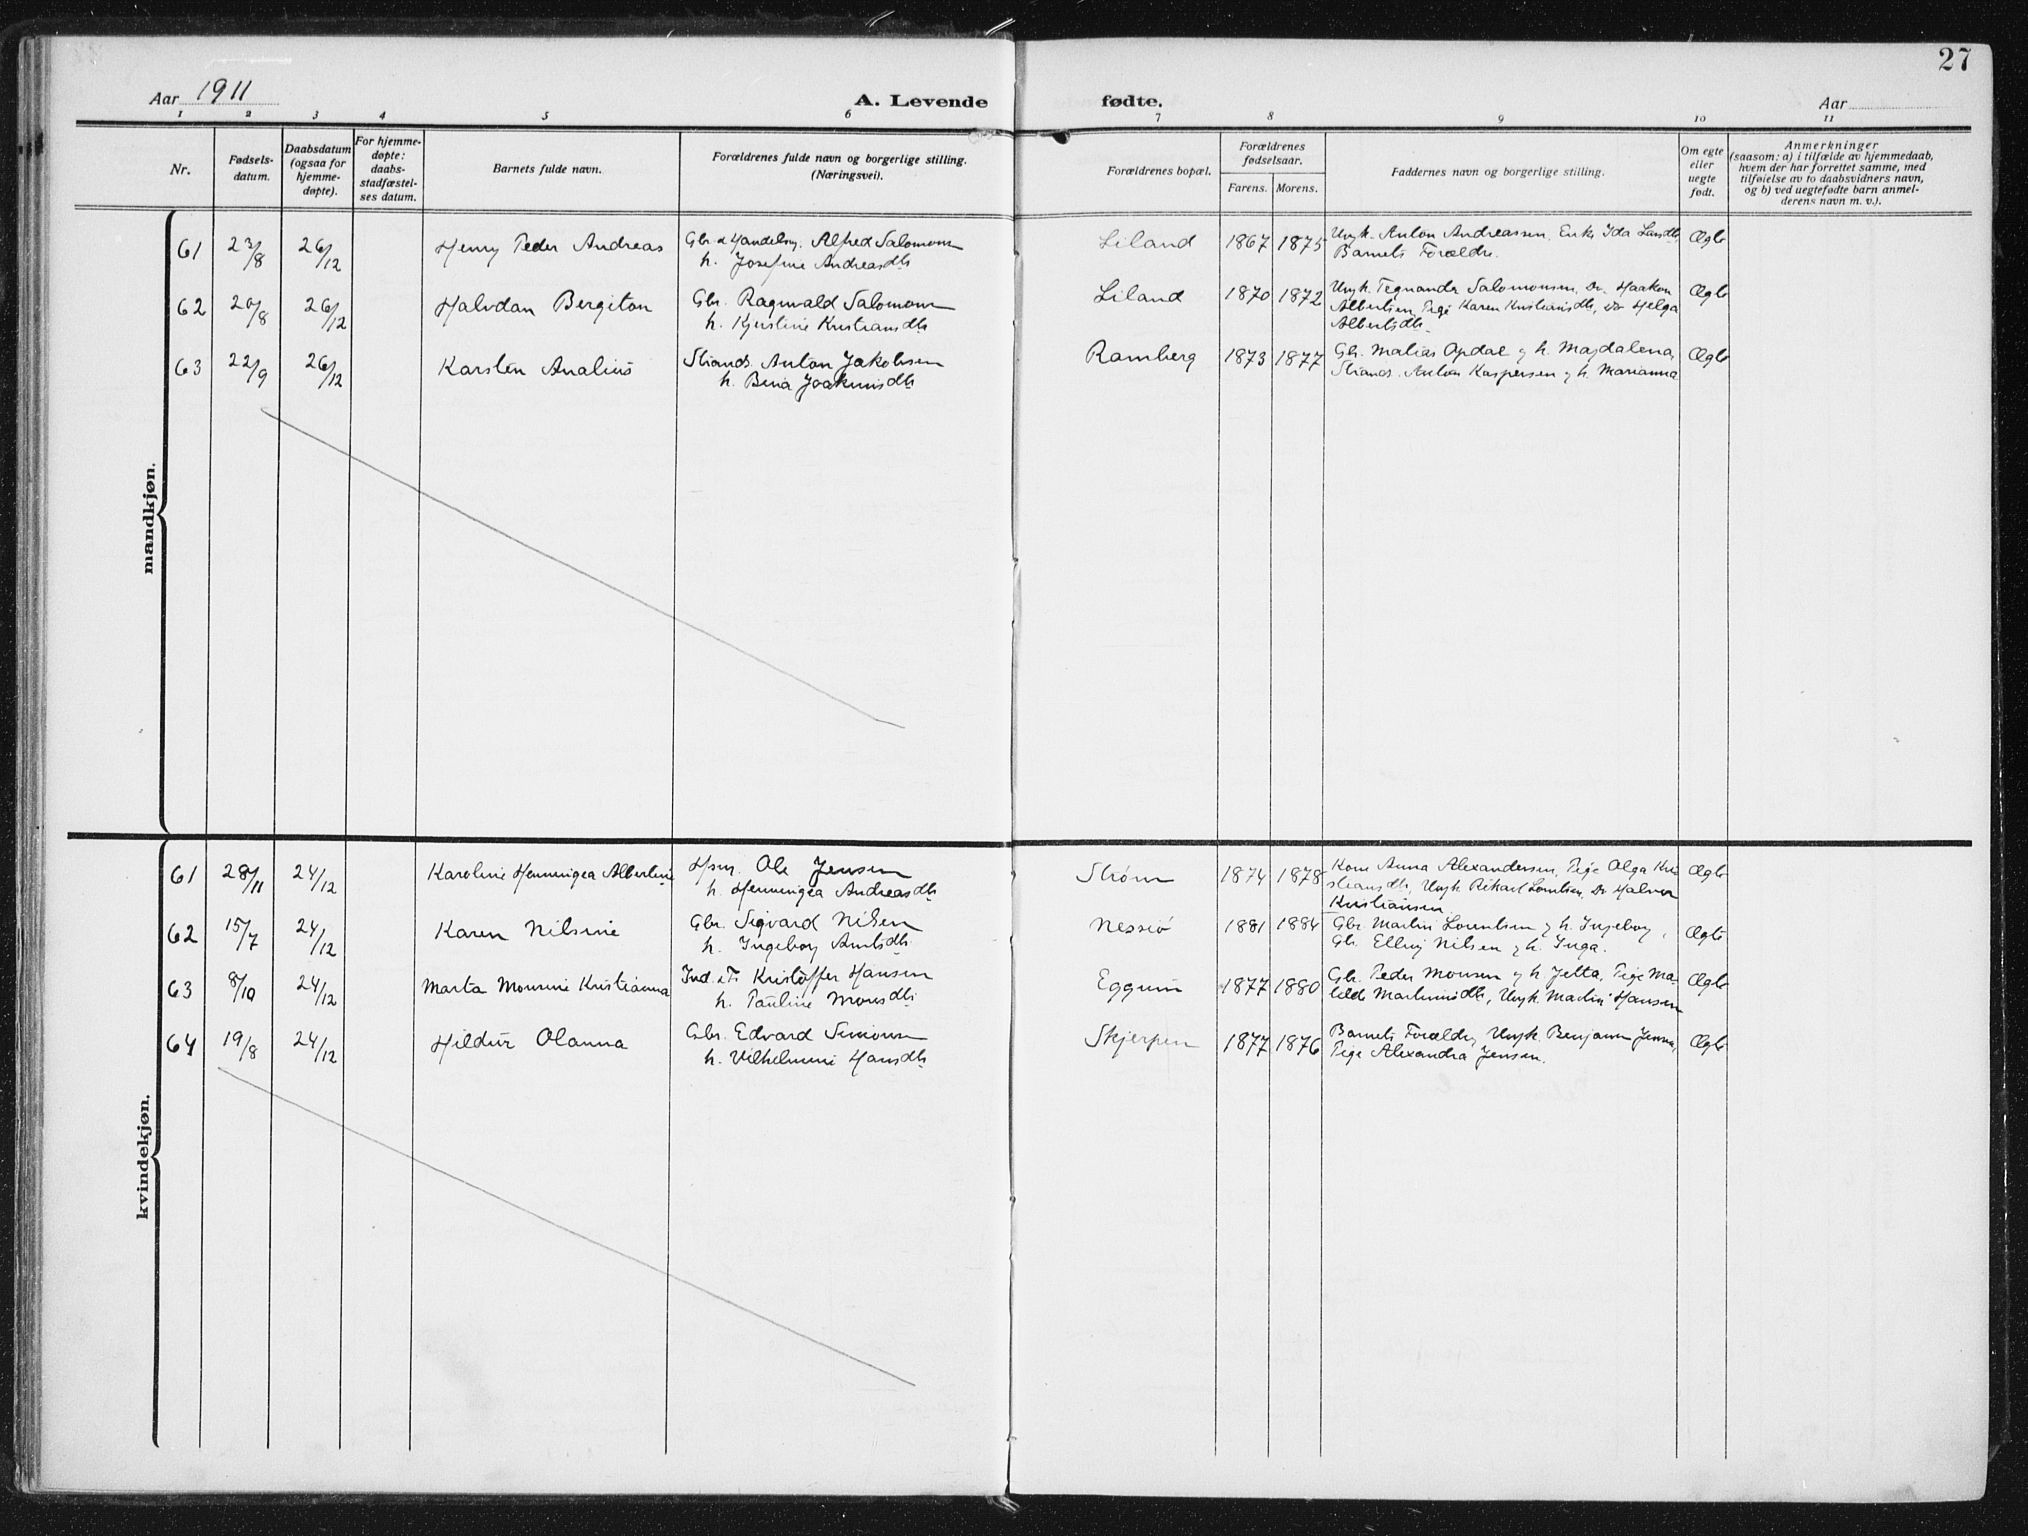 27
Aar 1911
A. Levende fødte.
Aar
1 2 3 4 5 6 7 8 9 10 11
Nr.
Fødsels-
datum.
Daabsdatum
(ogsaa for
hjemme-
døpte).
For hjemme-
døpte:
daabs-
stadfæstel-
ses datum.
Barnets fulde navn.
Forældrenes fulde navn og borgerlige stilling.
(Næringsvei).
Forældrenes bopæl.
Forældrenes
fødselsaar.
Farens. Morens.
Faddernes navn og borgerlige stilling.
Om egte
eller
uegte
født.
Anmerkninger
(saasom: a) i tilfælde av hjemmedaab,
hvem der har forrettet samme, med
tilføielse av to daabsvidners navn,
og b) ved uegtefødte barn anmel-
derens navn m. v.).
mandkjøn.
61 23/8 26/12 Henry Peder Andreas
Gbr. & Handelsm. Alfred Salomons
h. Josefine Andreasdtr
Liland 1867 1875
Ungk. Anton Andreassen, Enke Ida Larsdtr
Barnets Forældre.
Ægte
62 20/8 26/12 Halvdan Bergiton
Gbr. Ragnvald Salomons
h. Kjerstine Kristiansdtr
Liland 1870 1872
Ungk. Tegnander Salomonsen, Do. Haakon
Albertsen, Pige Karen Kristiansdtr, Do Helga
Albertsdtr
Ægte
63 22/9 26/12 Karsten Analius
Strands. Anton Jakobsen
h. Bina Joakimsdtr
Ramberg 1873 1877
Gbr. Matias Opdal og h. Magdalena,
Strands. Anton Kaspersen og h. Marianna
Ægte
kvindekjøn.
61 28/11 24/12 Karoline Henningea Albertine
Hsm. Ole Jensen
h. Henningea Andreasdtr
Strøm 1874 1878
Kone Anna Alexandersen, Pige Olga Kri
stiansdtr, Ungk. Rikard Lorntsen, Do Halvor
Kristiansen
Ægte
62 15/7 24/12 Karen Nilsine
Gbr. Sigvard Nilsen
h. Ingeborg Arntsdtr
Nessjø 1881 1884
Gbr. Martin Lorentsen og h. Ingeborg,
Gbr. Elling Nilsen og h. Inga.
Ægte
63 8/10 24/12 Marta Monsine Kristianna
Ind. & F. Kristoffer Hansen
h. Pauline Monsdtr
Eggum 1877 1880
Gbr. Peder Monsen og h. Jetta, Pige Ma-
tilde Martinusdtr, Ungk. Martin Hansen
Ægte
64 19/8 24/12 Hildur Olanna
Gbr. Edvard Simons
h. Vilhelmine Hansdtr
Skjerpen 1877 1876
Barnets Forældre, Ungk. Benjamin Jensen,
Pige Alexandra Jensen.
Ægte